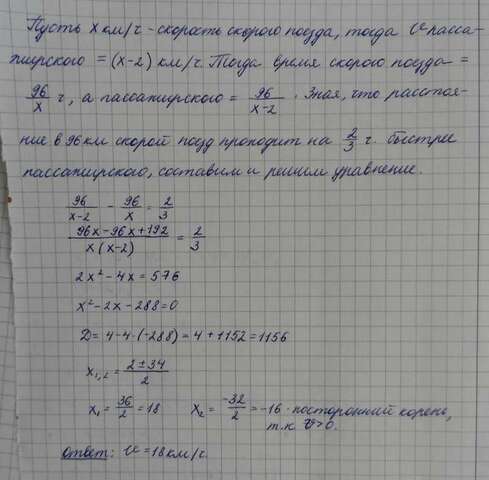 Пусть x км/ч - скорость скорого поезда, тогда V пасса-
жирского = (x-2) км/ч. Тогда время скорого поезда =
96/x ч, а пассажирского = 96/(x-2). Зная, что расстоя-
ние в 96 км скорой поезд проходит на 2/3 ч. быстрее
пассажирского, составим и решим уравнение.
96/(x-2) - 96/x = 2/3
(96x-96x+192)/(x(x-2)) = 2/3
2x²-4x=576
x²-2x-288=0
D=4-4·(-288)=4+1152=1156
x₁,₂=(2±34)/2
x₁=36/2=18 x₂=-32/2=-16 - посторонний корень,
т.к V>0.
Ответ: V=18 км/ч.